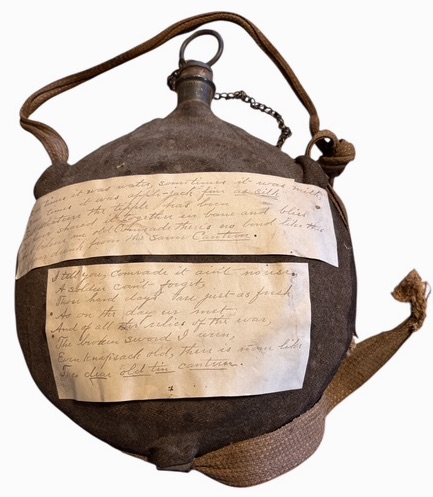 times it was water, sometimes it was milk
times it was apple-jack fine as silk
the tipple has been
shared together in bane and bliss
old Comrade there's no bond like this
drank from the same Canteen.
I tell you, Comrade it ain't no use,
A soldier can't forget,
Those hard days pass just as fresh
As on the day we met
And of all relics of the war,
The broken sword I won,
Even knapsack old, there is none like
This dear old tin canteen.